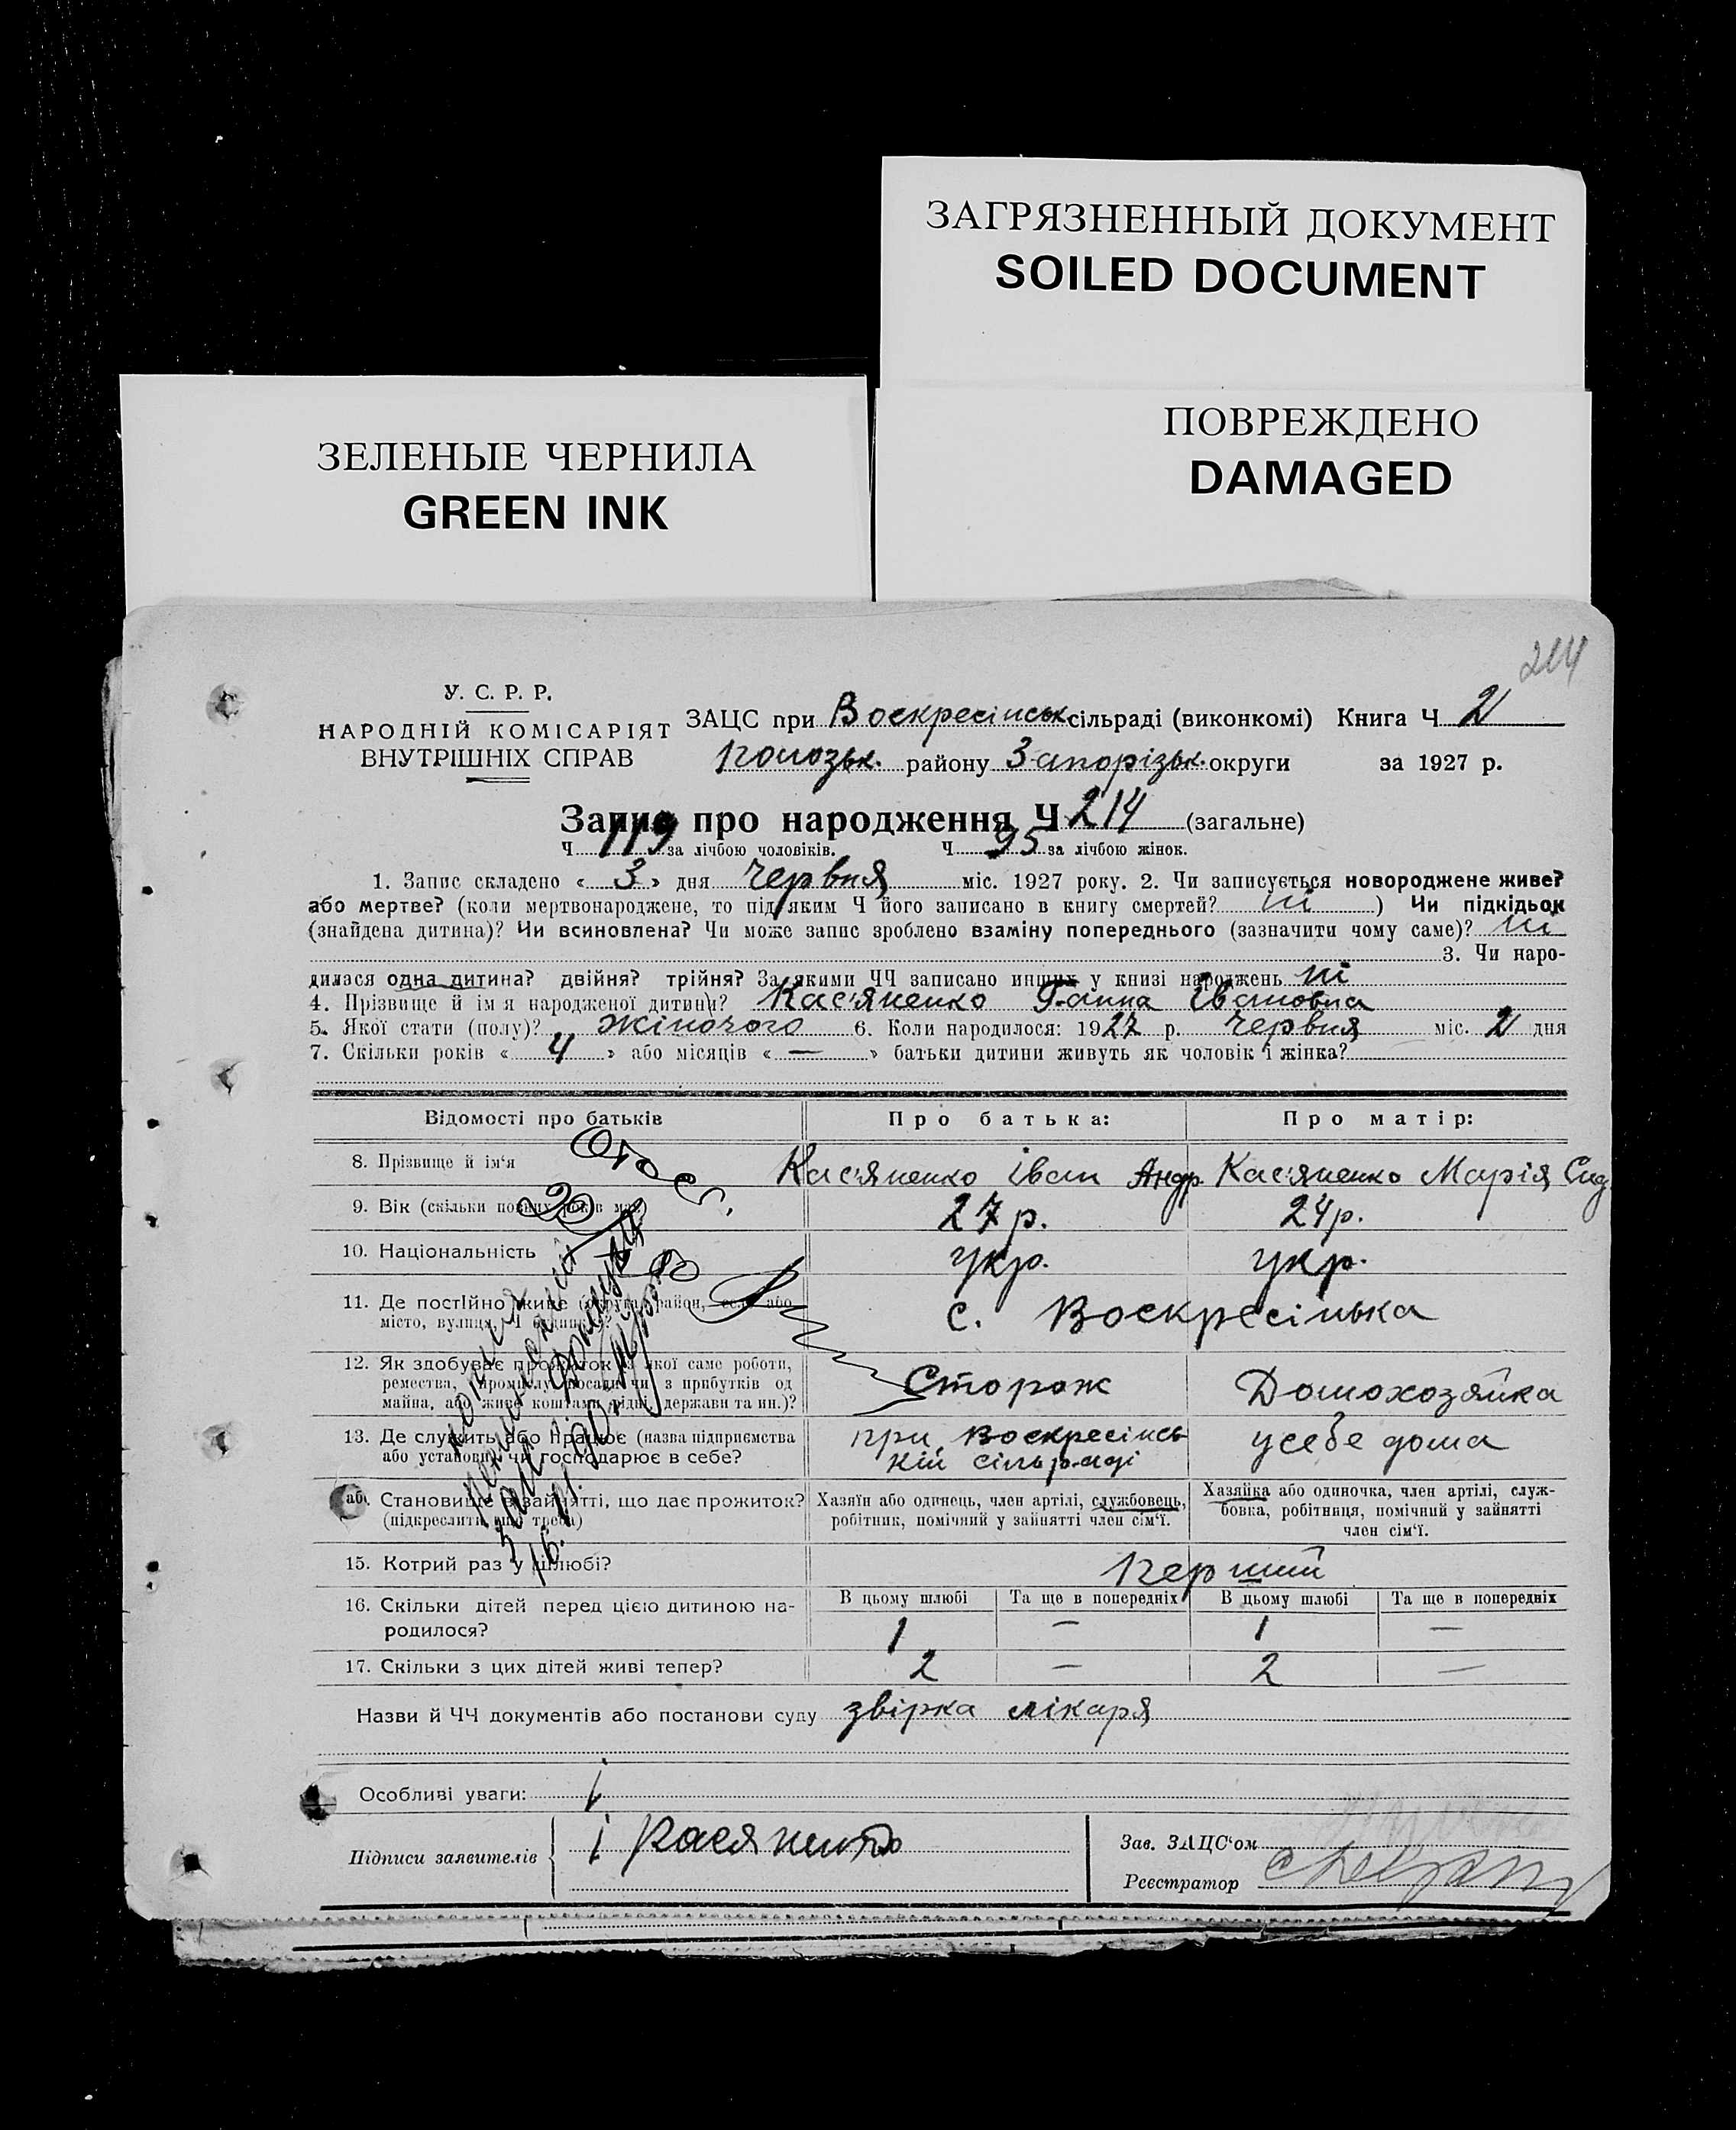 ЗАГРЯЗНЕННЫЙ ДОКУМЕНТ
SOILED DOCUMENT
ЗЕЛЕНЫЕ ЧЕРНИЛА
GREEN INK
ПОВРЕЖДЕНО
DAMAGED
214
У. С. Р. Р.
НАРОДНІЙ КОМІСАРІЯТ
ВНУТРІШНІХ СПРАВ
ЗАЦС при Воскресінськ сільраді (виконкомі) Книга Ч 2
району Запорізьк. округи за 1927 р.
Запис про народження Ч 214 (загальне)
Ч 119 за лічбою чоловіків. Ч 95 за лічбою жінок.
1. Запис складено « 3 » дня червня міс. 1927 року. 2. Чи записується новороджене живе?
або мертве? (коли мертвонароджене, то під яким Ч його записано в книгу смертей? ні ) Чи підкідьок
(знайдена дитина)? Чи всиновлена? Чи може запис зроблено взаміну попереднього (зазначити чому саме)? ні
3. Чи наро-
дилася одна дитина? двійня? трійня? За якими ЧЧ записано инших у книзі народжень ні
4. Прізвище й ім'я народженої дитини? Кас'яненко Ганна Івановна
5. Якої стати (полу)? жіночого 6. Коли народилося: 1927 р. червня міс. 2 дня
7. Скільки років « 4 » або місяців « — » батьки дитини живуть як чоловік і жінка?
Відомості про батьків Про батька: Про матір:
8. Прізвище й ім'я Кас'яненко Іван Андр Кас'яненко Марія Сид
9. Вік (скільки повних років має) 27 р. 24 р.
10. Національність укр. укр.
11. Де постійно живе (округа, район, село або
місто, вулиця, Ч будинку)? с. Воскресінька
12. Як здобуває прожиток з якої саме роботи,
ремества, промислу, посади чи з прибутків од
майна, або живе коштами рідні, держави та ин.)? Сторож Домохозяйка
13. Де служить або працює (назва підприємства
або установи) чи господарює в себе? при Воскресінсь
кій сільраді у себе дома
Становище в зайнятті, що дає прожиток?
(підкреслити що треба)
Хазяїн або одинець, член артілі, службовець,
робітник, помічний у зайнятті член сім'ї.
Хазяйка або одиночка, член артілі, служ-
бовка, робітниця, помічний у зайнятті
член сім'ї.
15. Котрий раз у шлюбі? перший
16. Скільки дітей перед цією дитиною на-
родилося?
В цьому шлюбі Та ще в попередніх В цьому шлюбі Та ще в попередніх
1 — 1 —
17. Скільки з цих дітей живі тепер? 2 — 2 —
Назви й ЧЧ документів або постанови суду звірка лікаря
Особливі уваги:
Підписи заявителів
Зав. ЗАЦС'ом
Реєстратор